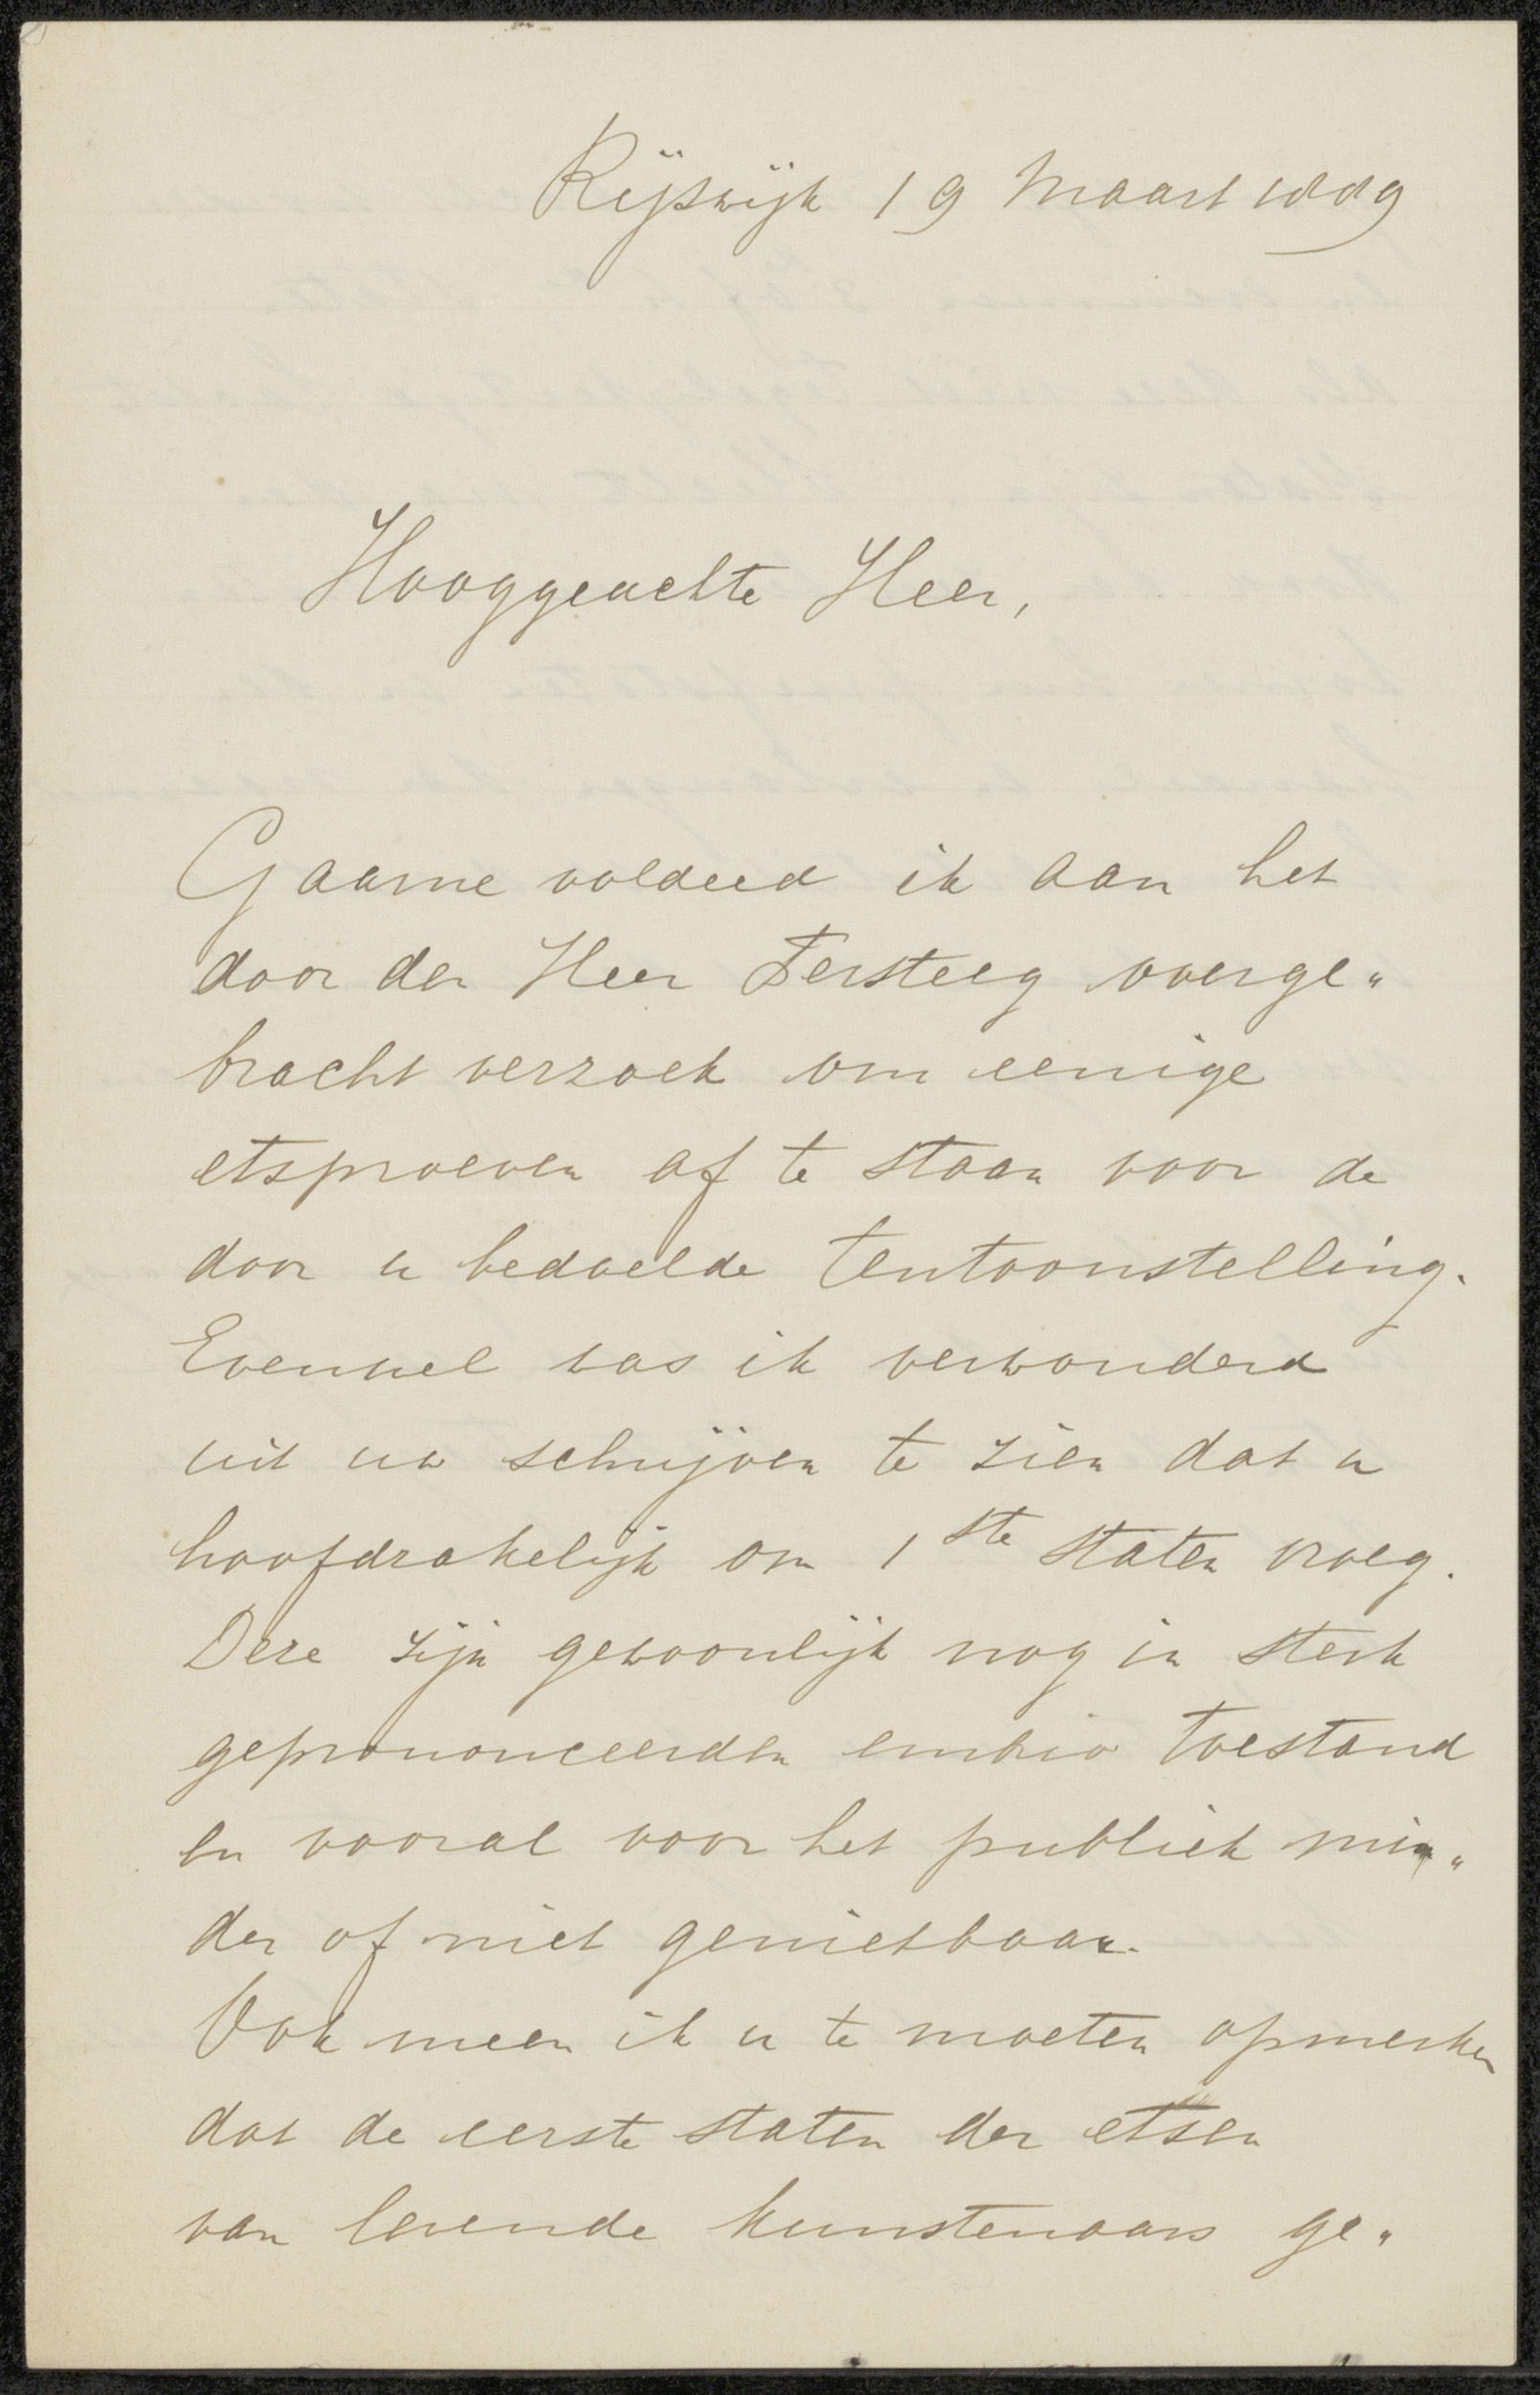 Rijswijk 19 Maart 1889
Hooggeachte Heer,
Gaarne voldeed ik aan het
door den Heer Tersteeg overge„
bracht verzoek om eenige
etsproeven af te staan voor de
door u bedoelde tentoonstelling.
Evenwel was ik verwonderd
uit uw schrijven te zien dat u
hoofdzakelijk om 1ste staten vroeg.
Deze zijn gewoonlijk nog in sterk
geprononceerden embrio toestand
en vooral voor het publiek min„
der of niet genietbaar.
Ook meen ik u te moeten opmerken
dat de eerste staten der etsen
van levende kunstenaars ge„